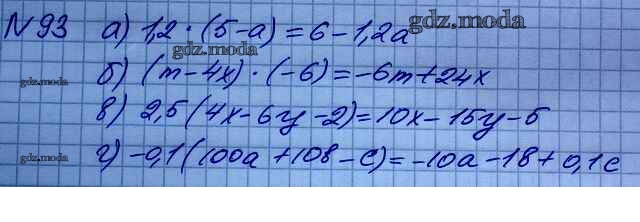 N 93 а) 1,2 · (5-a) = 6 - 1,2a
б) (m-4x) · (-6) = -6m+24x
в) 2,5(4x-6y-2)=10x-15y-5
г) -0,1(100a+10в-c)=-10a-1в+0,1c
gdz.moda
gdz.moda
gdz.moda
gdz.moda
gdz.moda
gdz.moda
gdz.moda